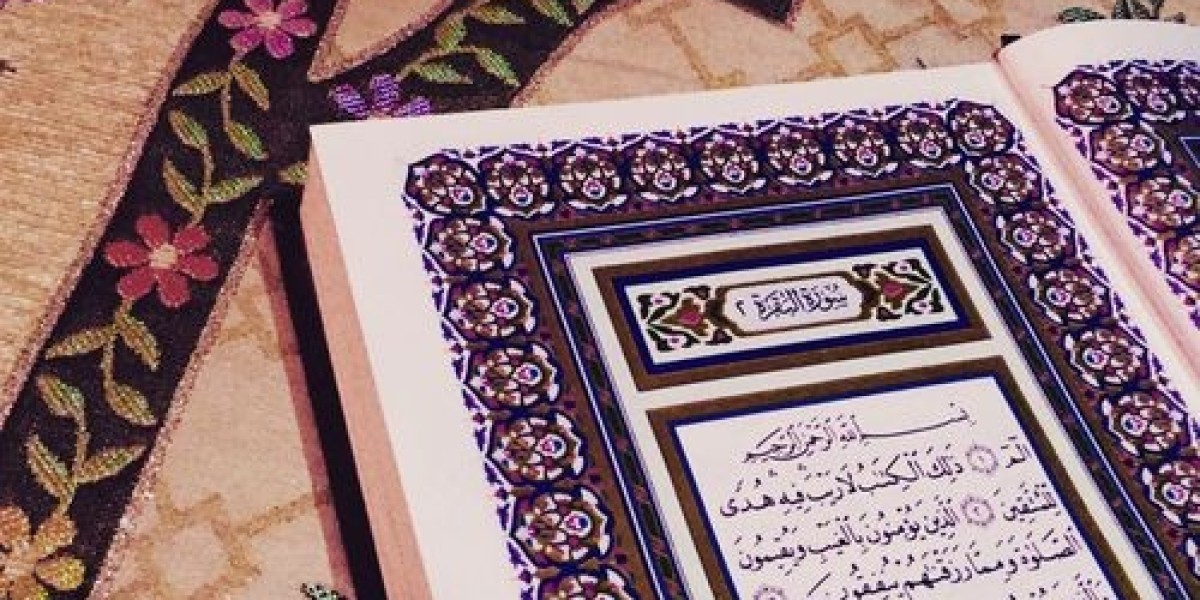 سُورَةُ الْبَقَرَةِ ٢
بِسْمِ اللَّهِ الرَّحْمَٰنِ الرَّحِيمِ
الٓمٓ ١ ذَٰلِكَ الْكِتَٰبُ لَا رَيْبَ فِيهِ هُدًى
لِّلْمُتَّقِينَ ٢ الَّذِينَ يُؤْمِنُونَ بِالْغَيْبِ وَيُقِيمُونَ
الصَّلَوٰةَ وَمِمَّا رَزَقْنَٰهُمْ يُنفِقُونَ
وَالَّذِينَ